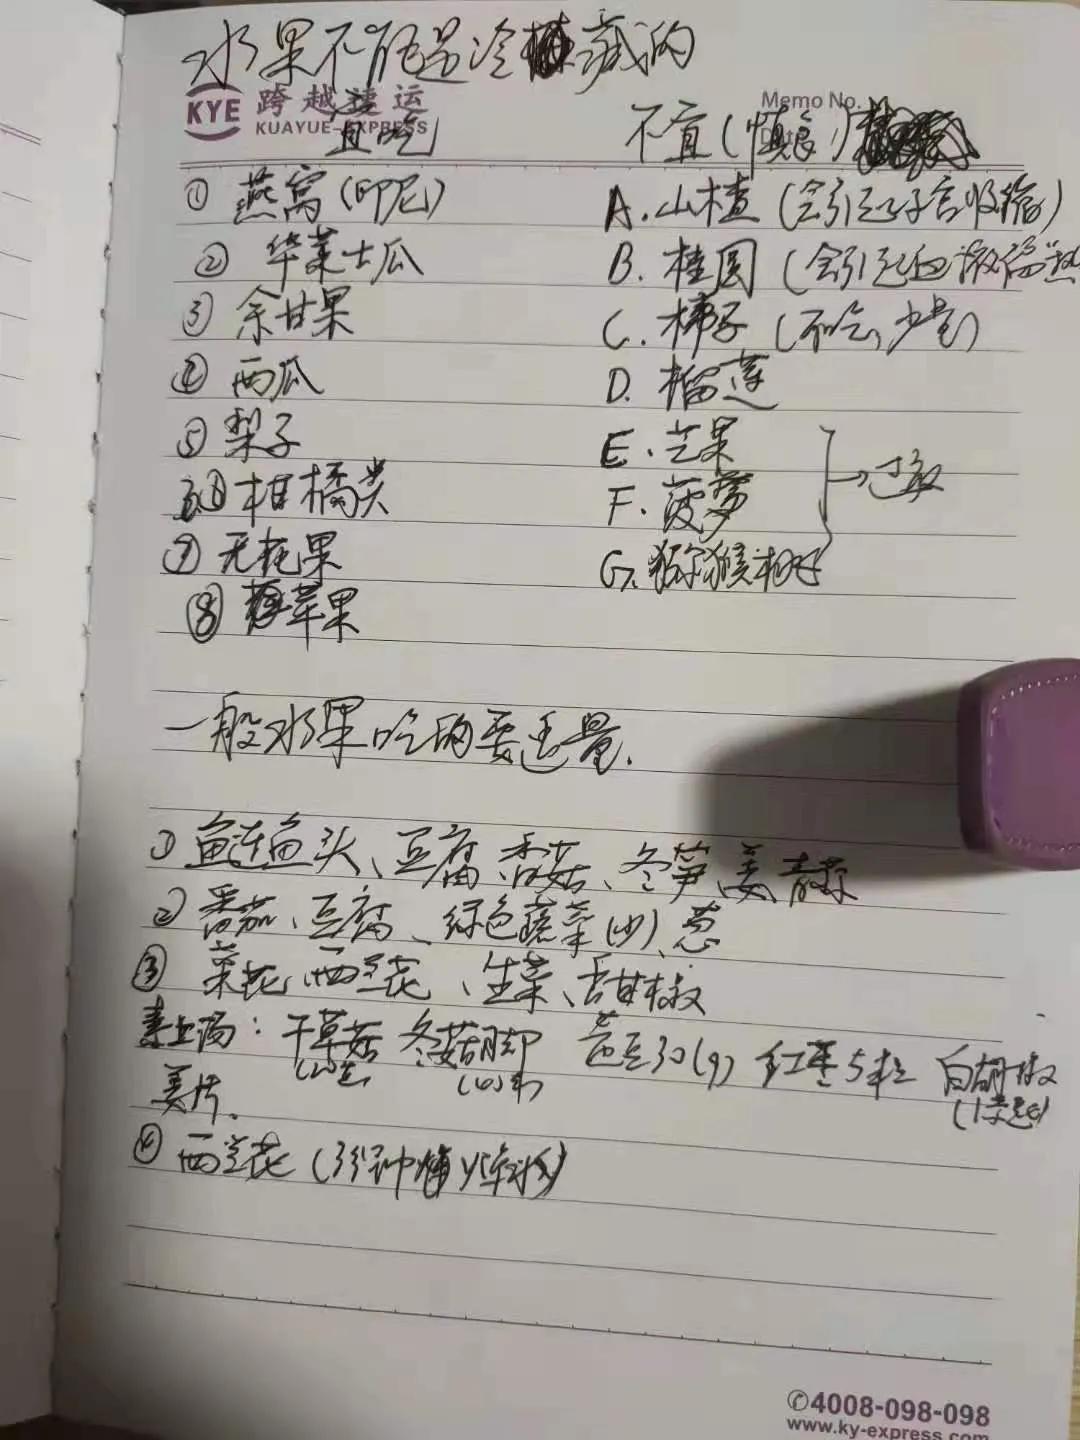 水果不能是冷藏的
KYE 跨越速运
KUAYUE-EXPRESS
Memo No.
宜吃
不宜(慎食)
① 燕窝(印尼)
A. 山楂(会引起子宫收缩)
② 华莱士瓜
B. 桂圆(会引起血液偏热
③ 余甘果
C. 柿子(不吃,少量)
④ 西瓜
D. 榴莲
⑤ 梨子
E. 芒果
柑橘类
F. 菠萝
→过敏
⑦ 无花果
G. 猕猴桃
⑧ 苹果
一般水果吃的要适量.
① 鲢鱼头、豆腐、香菇、冬笋、姜、青蒜
② 番茄、豆腐、绿色蔬菜(炒)、葱
③ 菜花、西兰花、生菜、甜椒
素上汤: 干草菇 冬菇脚 30(g) 红枣5粒 白胡椒
姜片.
④ 西兰花(3分钟
✆4008-098-098
www.ky-express.com